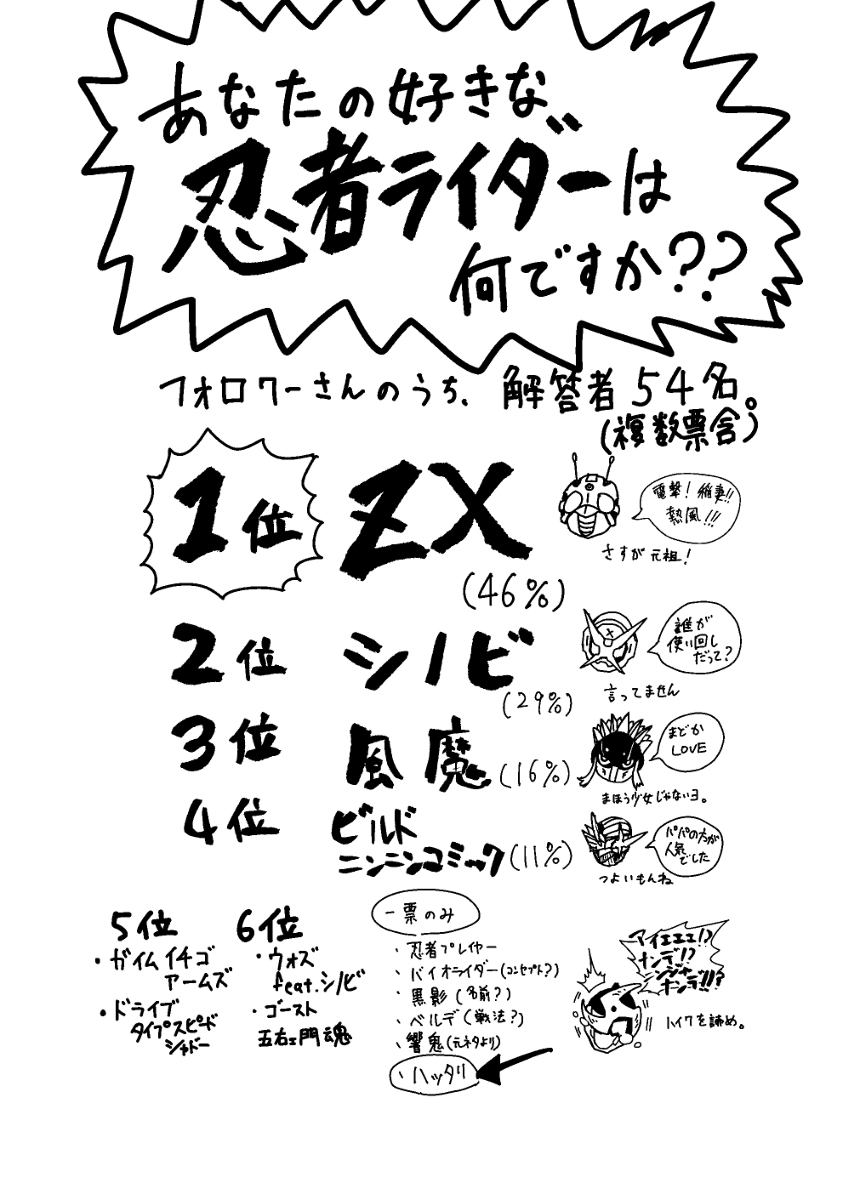 あなたの好きな、
忍者ライダーは
何ですか??
フォロワーさんのうち、解答者54名。
(複数票含)
1位 ZX
(46%)
電撃!稲妻!!
熱風!!!
さすが元祖!
2位 シノビ
(29%)
誰が
使い回し
だって?
言ってません
3位 風魔 (16%)
まどか
LOVE
まほう少女じゃないヨ。
4位 ビルド
ニンニンコミック (11%)
パパの方が
人気
でした
つよいもんね
5位
・ガイムイチゴ
アームズ
・ドライブ
タイプスピード
シャドー
6位
・ウォズ
feat.シノビ
・ゴースト
五右ェ門魂
一票のみ
・忍者プレイヤー
・バイオライダー(コンセプト?)
・黒影(名前?)
・ベルデ(戦法?)
・響鬼(元ネタより)
・ハッタリ
アイエエエ!?
ナンデ!?
ンジャ
ナンデ!!?
ハイクを詠め。